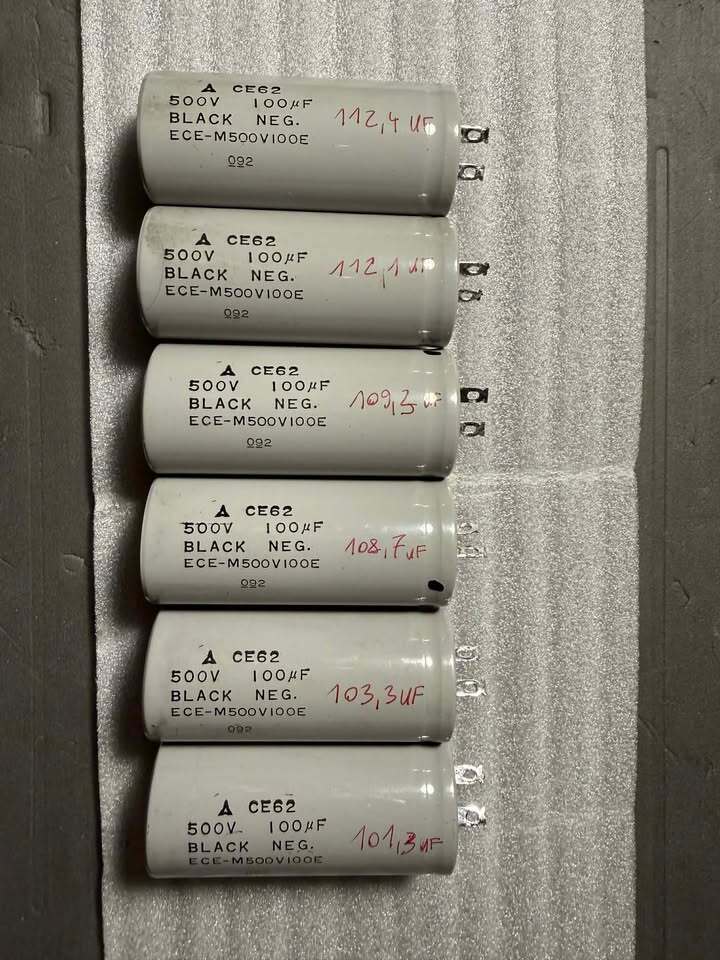 CE62
500V 100µF
BLACK NEG.
ECE-M500V100E
092
112,4 uF
CE62
500V 100µF
BLACK NEG.
ECE-M500V100E
092
112,1 uF
CE62
500V 100µF
BLACK NEG.
ECE-M500V100E
092
109,2 uF
CE62
500V 100µF
BLACK NEG.
ECE-M500V100E
092
108,7 uF
CE62
500V 100µF
BLACK NEG.
ECE-M500V100E
092
103,3 uF
CE62
500V 100µF
BLACK NEG.
ECE-M500V100E
101,3 uF